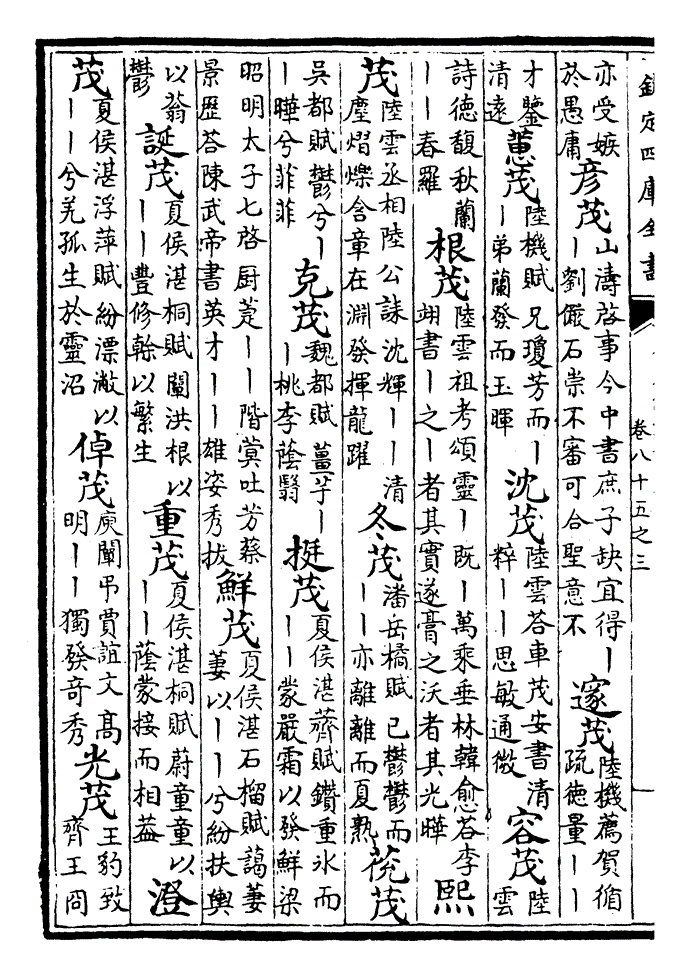 欽定四庫全書 卷八十五之三
亦受嫉於愚庸 彥茂 山濤啓事今中書庶子缺宜得丨丨劉儼石崇不審可合聖意不 邃茂 陸機薦賀循疏德量丨丨
才鑒清遠 蕙茂 陸機賦兄瓊芳而丨丨弟蘭發而玉暉 沈茂 陸雲荅車茂安書清粹丨丨思敏通微 容茂 陸雲
詩德馥秋蘭丨丨春羅 根茂 陸雲祖考頌靈丨既丨萬乘垂林韓愈荅李翊書丨之丨者其實遂膏之沃者其光曄 熙
茂 陸雲丞相陸公誄沈輝丨丨清塵熠爍含章在淵發揮龍躍 冬茂 潘岳橘賦已鬱鬱而丨丨亦離離而夏熟 茂
吳都賦鬱兮丨丨曄兮菲菲 充茂 魏都賦薑芋丨丨桃李蔭翳 挺茂 夏侯湛薺賦鑽重冰而丨丨蒙嚴霜以發鮮梁
昭明太子七啓厨萐丨丨階蓂吐芳蔡景歴荅陳武帝書英才丨丨雄姿秀拔 鮮茂 夏侯湛石榴賦藹萋萋以丨丨兮紛扶輿
以蓊鬱 誕茂 夏侯湛桐賦闡洪根以丨丨豐修榦以繁生 重茂 夏侯湛桐賦蔚童童以丨丨蔭蒙接而相葢 澄
茂 夏侯湛浮萍賦紛漂潎以丨丨兮羌孤生於靈沼 倬茂 庾闡弔賈誼文高明丨丨獨發奇秀 光茂 王豹致齊王冏